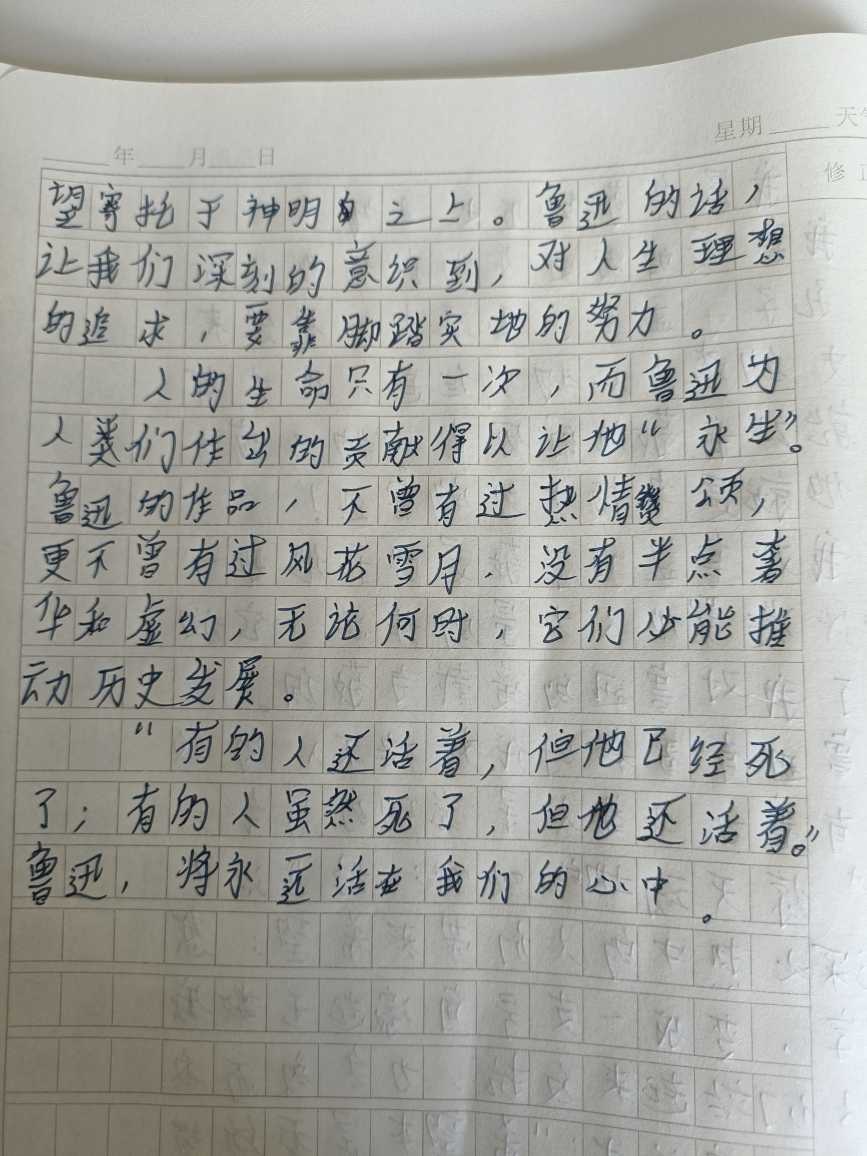 星期 天
年 月 日
修
望寄托于神明之上。鲁迅的话，
让我们深刻的意识到，对人生理想
的追求，要靠脚踏实地的努力。
人的生命只有一次，而鲁迅为
人类们作出的贡献得以让他“永生”。
鲁迅的作品，不曾有过热情 颂，
更不曾有过风花雪月，没有半点奢
华和虚幻，无论何时，它们必能推
动历史发展。
“有的人还活着，但他已经死
了；有的人虽然死了，但他还活着。”
鲁迅，将永远活在我们的心中。